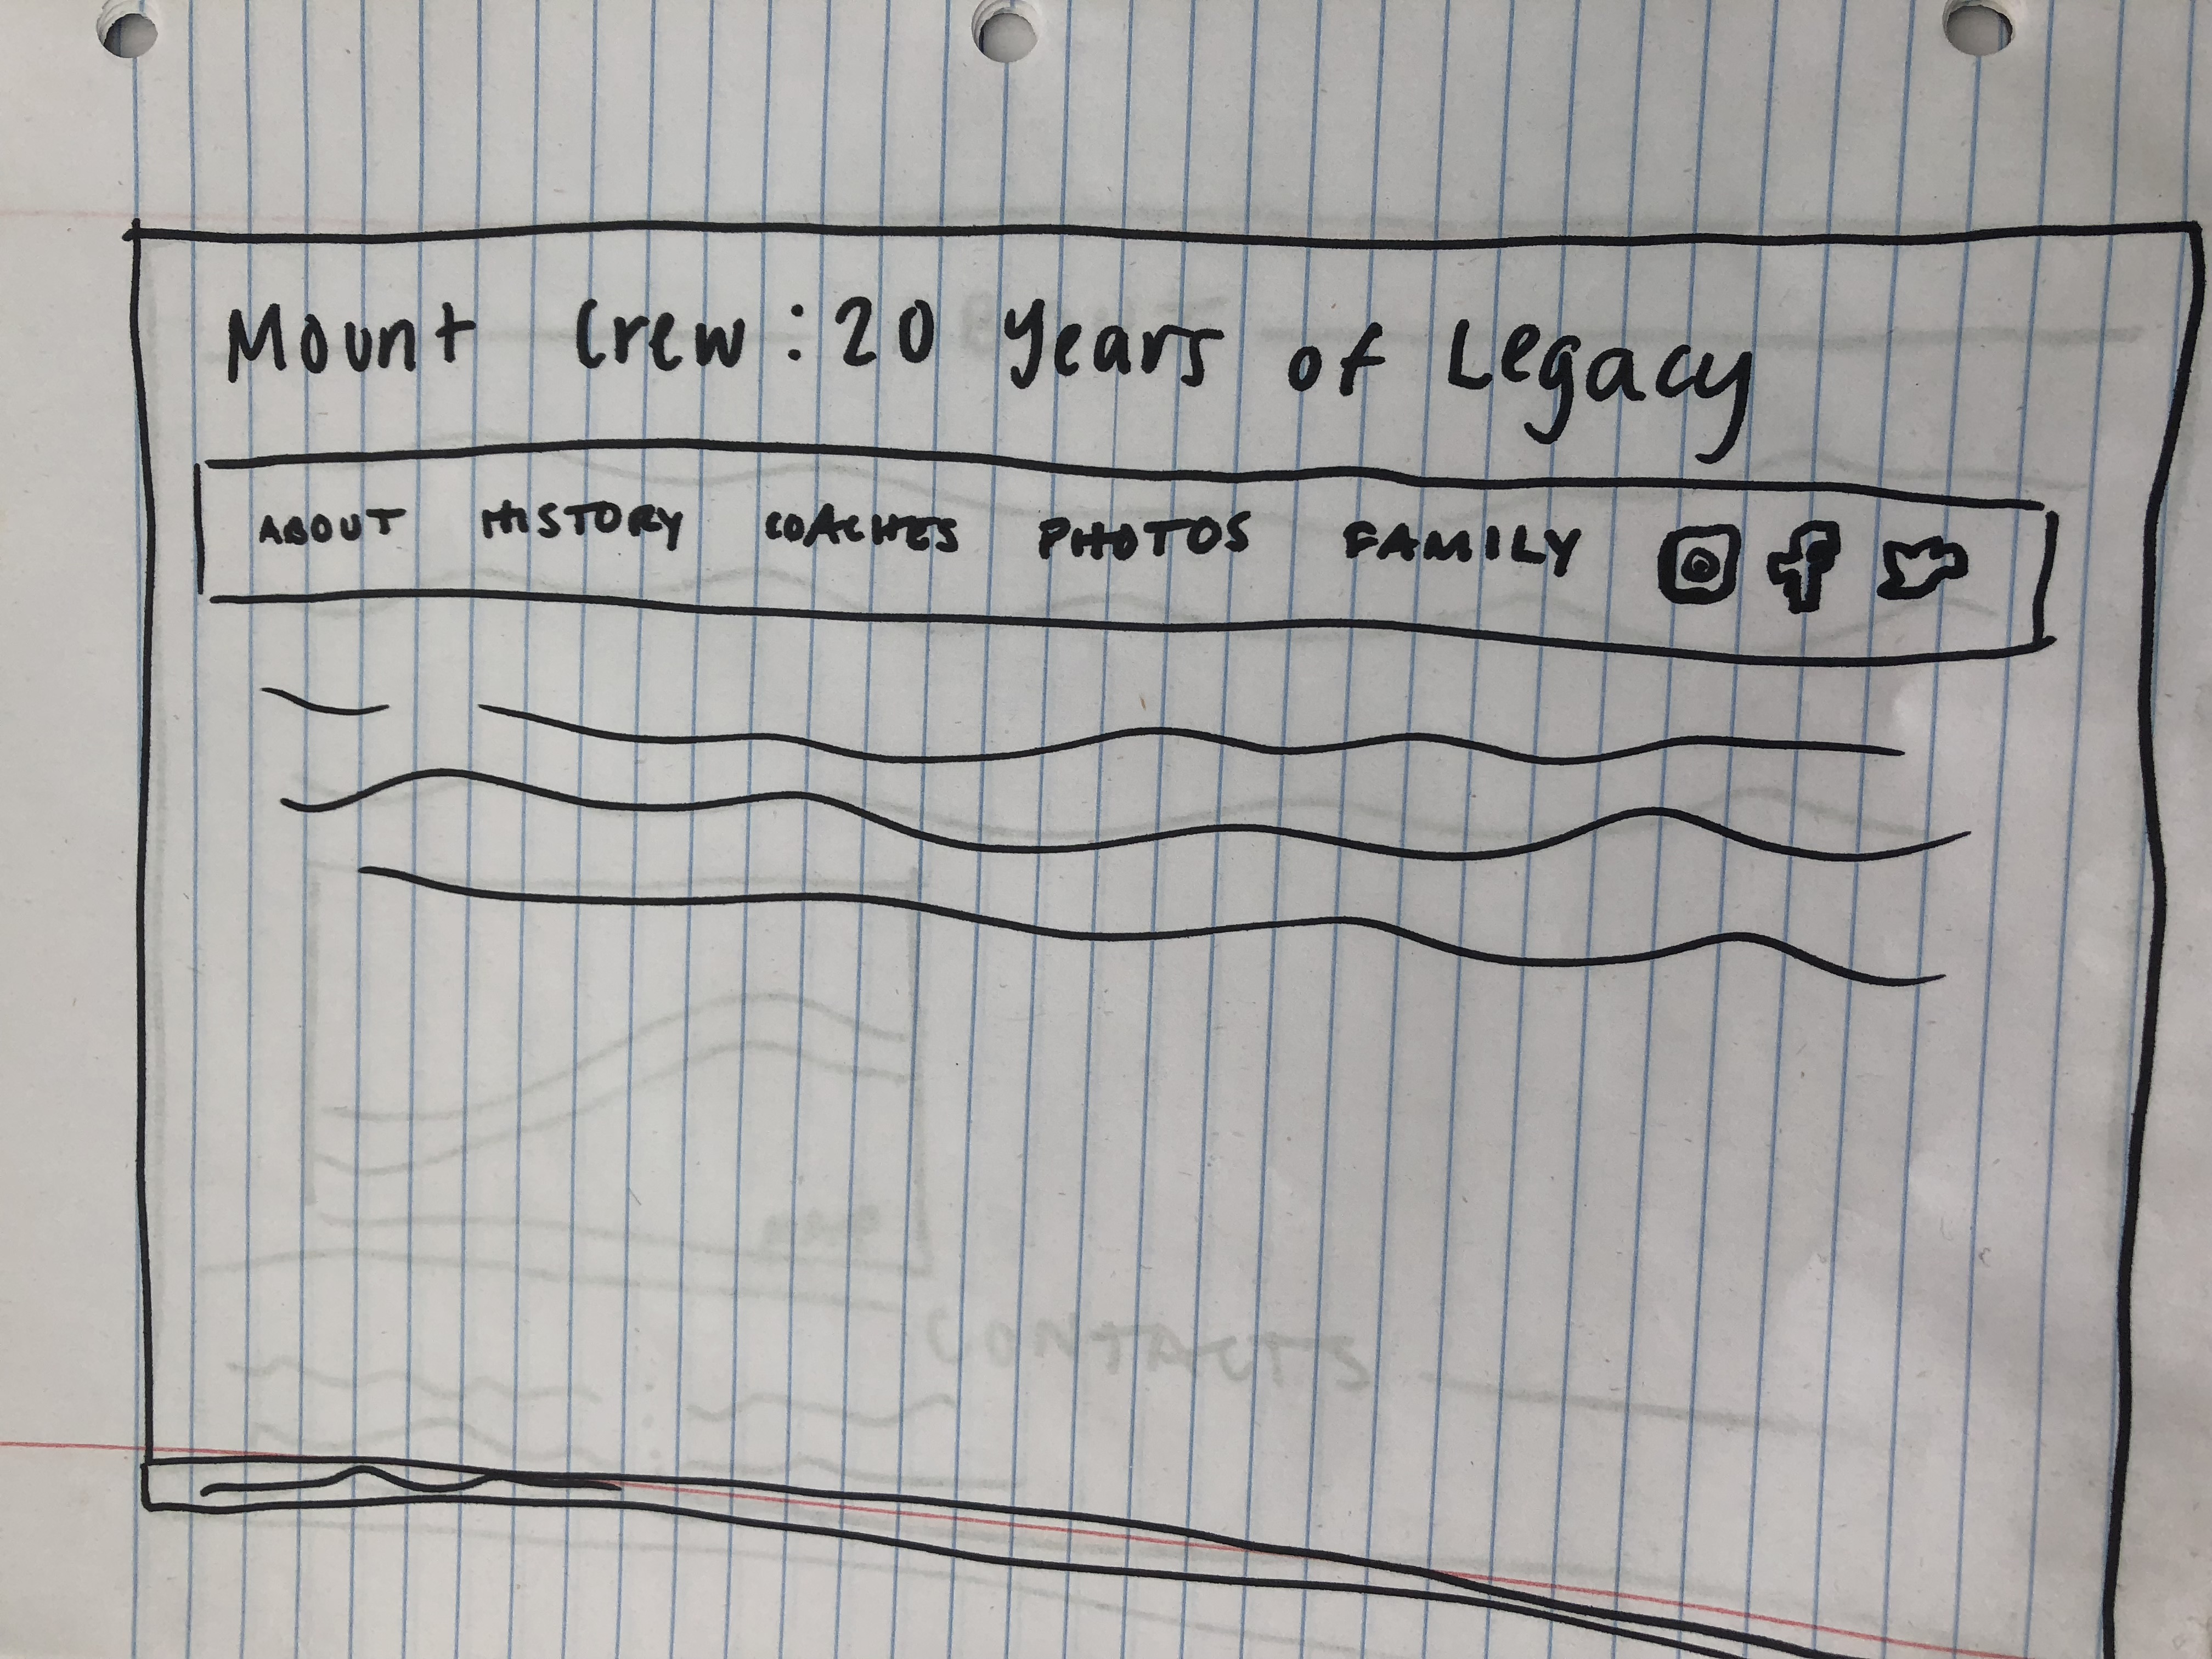 Mount Crew: 20 years of Legacy
ABOUT HISTORY COACHES PHOTOS FAMILY
CONTACTS